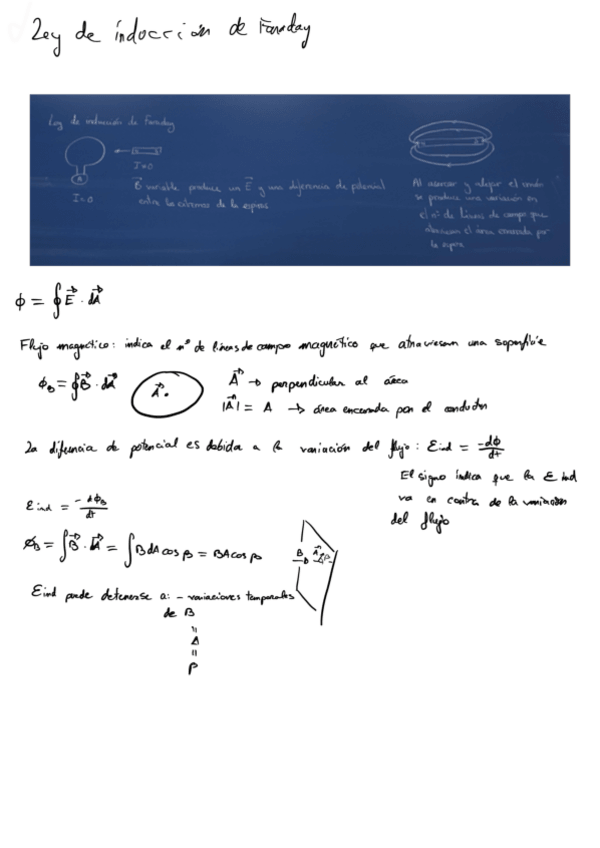 Ley de inducción de Faraday
Ley de inducción de Faraday
I=0
A
I=0
B⃗ variable produce un E⃗ y una diferencia de potencial
entre los extremos de la espira
Al acercar y alejar el imán
se produce una variación en
el nº de líneas de campo que
atraviesan el área encerrada por
la espira
ϕ = ∮E⃗ · dA⃗
Flujo magnético: indica el nº de líneas de campo magnético que atraviesan una superficie
ϕB = ∮B⃗ · dA⃗
A⃗
A⃗ → perpendicular al área
|A⃗| = A → área encerrada por el conductor
La diferencia de potencial es debida a la variación del flujo: Eind = -dϕ/dt
El signo indica que la E ind
va en contra de la variación
del flujo
Eind = -dϕB/dt
ϕB = ∫B⃗ · dA⃗ = ∫BdA cos β = BA cos β
B A⃗ β
Eind puede deberse a: - variaciones temporales
de B
"
A
"
β